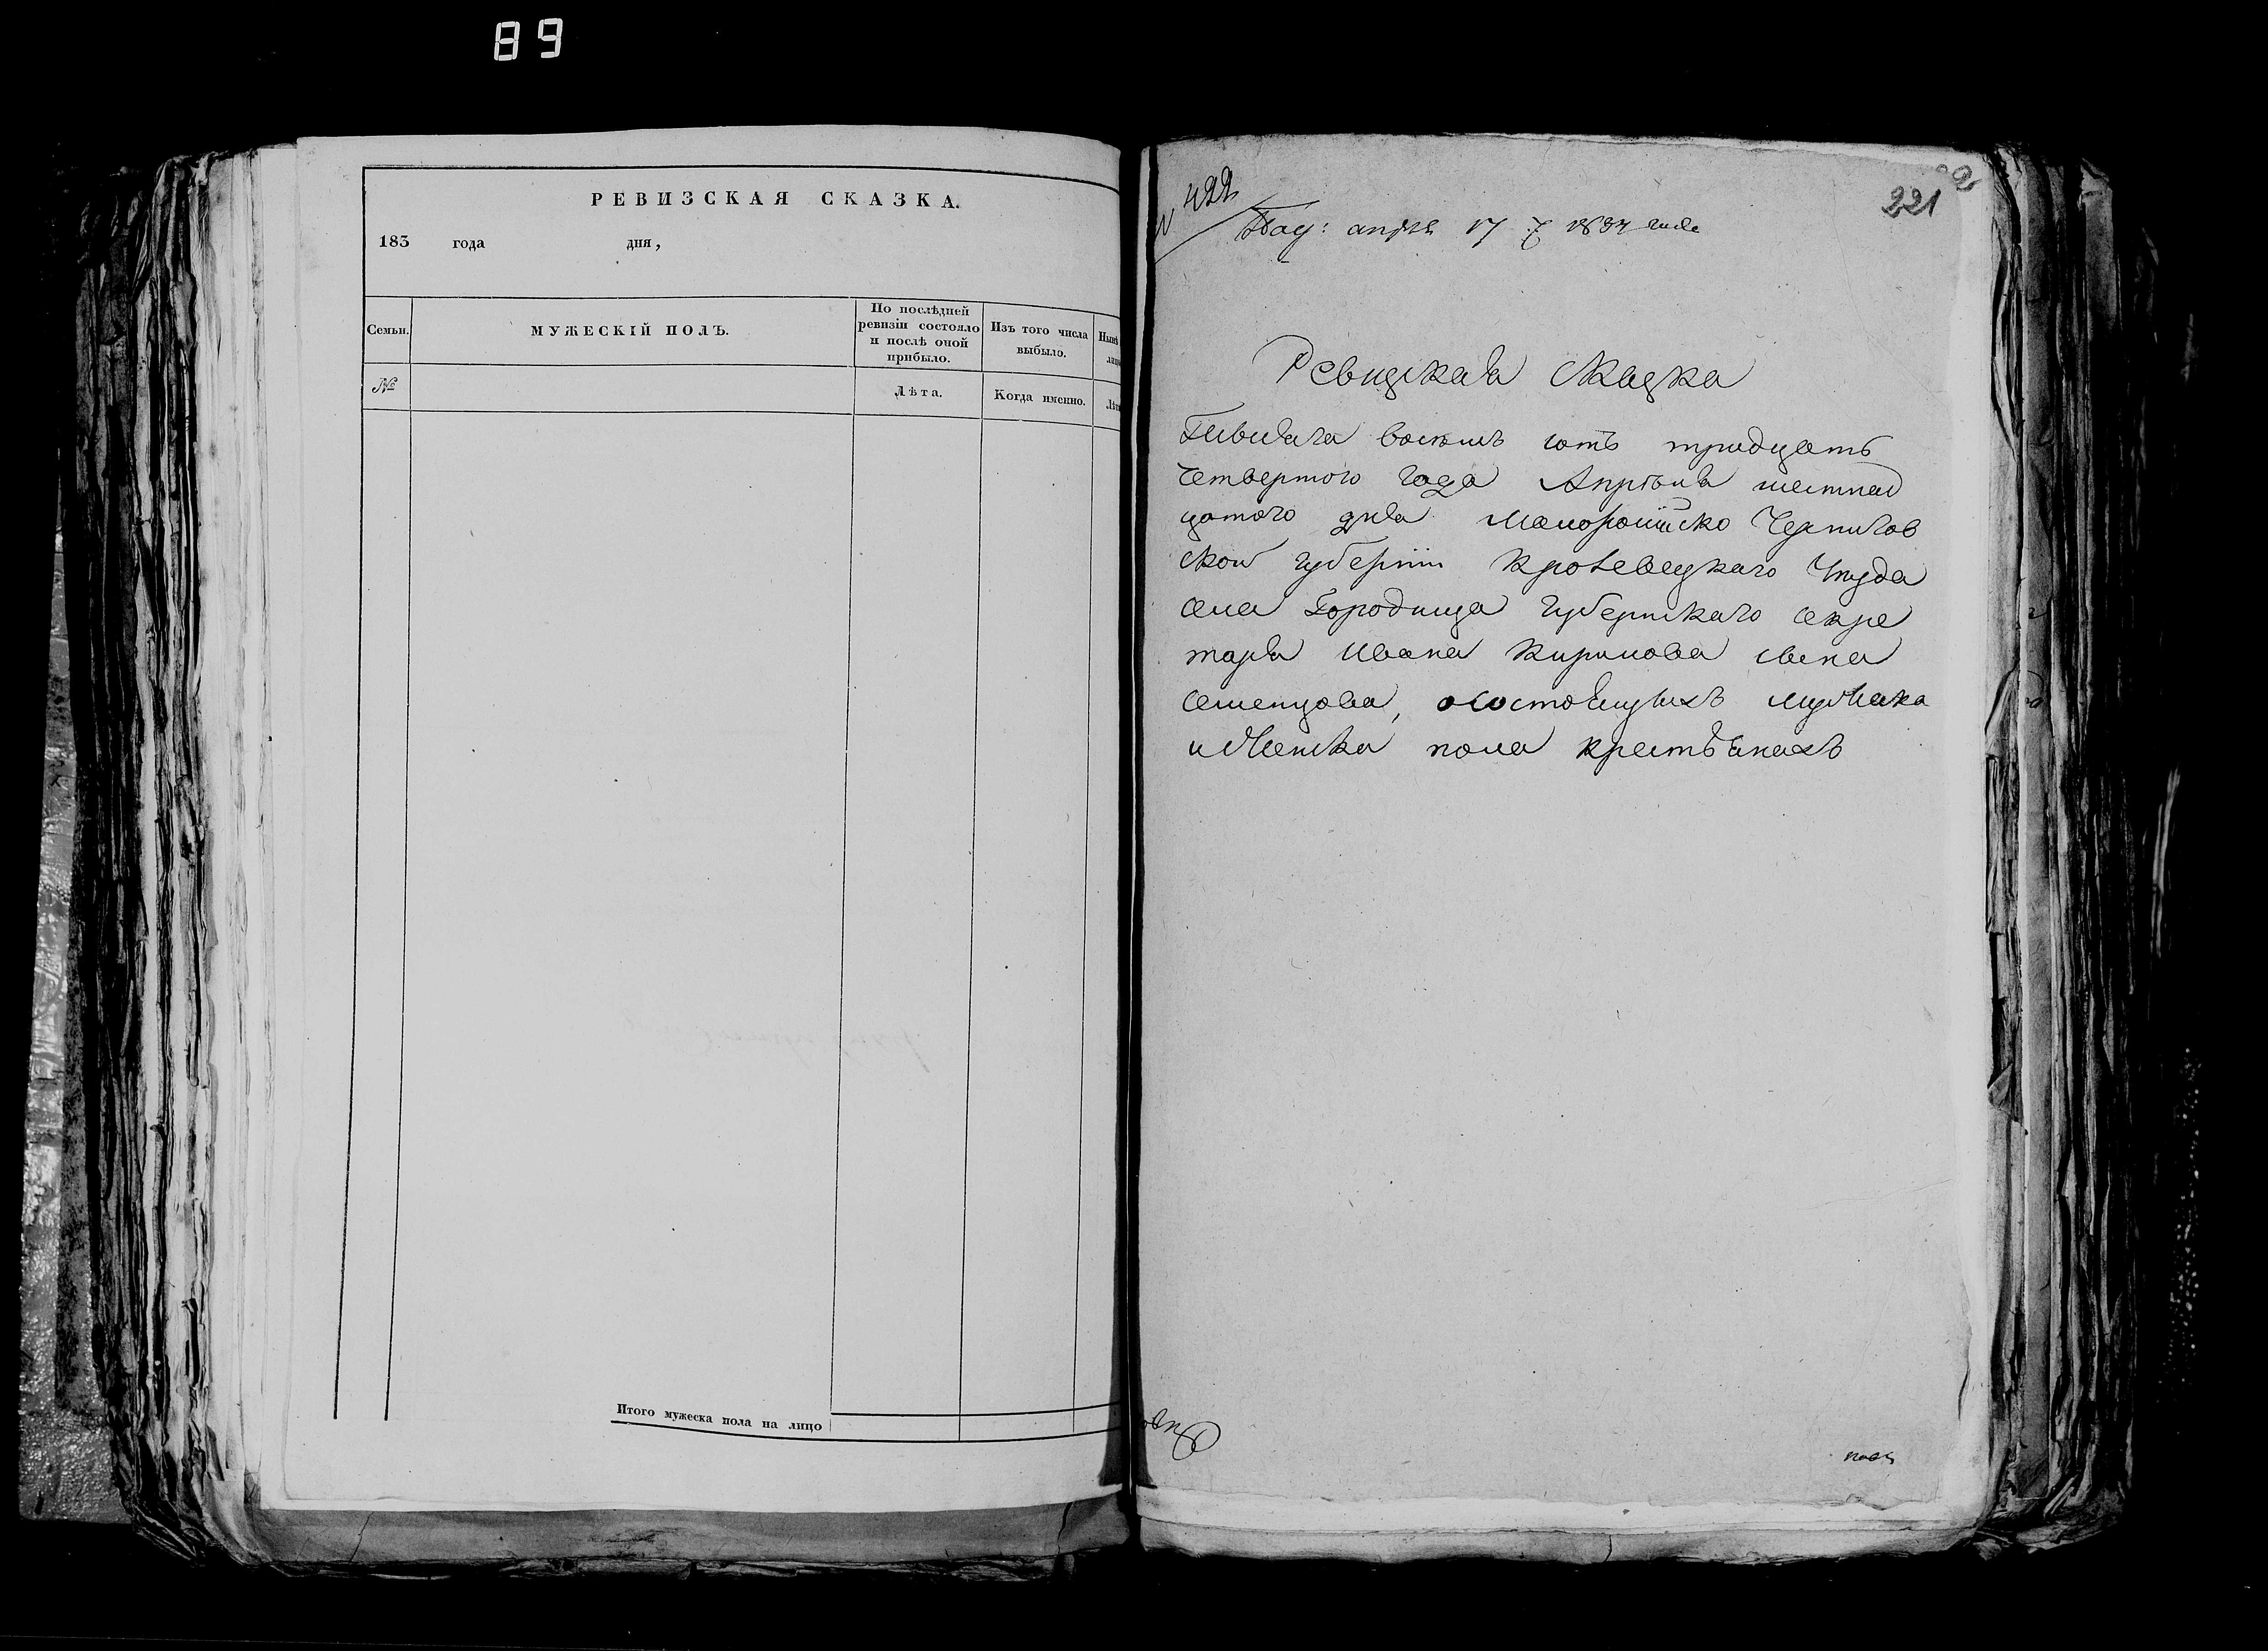 89
РЕВИЗСКАЯ СКАЗКА.
183 года дня,
Семьи.
МУЖЕСКІЙ ПОЛЪ.
По послѣдней
ревизіи состояло
и послѣ оной
прибыло.
Изъ того числа
выбыло.
№
Лѣта.
Когда именно.
Итого мужеска пола на лицо
N 422
221
Под: апрѣля 17 1834 года
Ревизская Сказка
Тысяча восемь сотъ тридцать
четвертого года Апрѣля шестнад
цатого дня Малороссійско Чернигов
ской губерніи Кролевецкаго Уезда
села Городища Губернскаго секре
таря Ивана Кирилова сына
Семенцова, о состоящихъ мужеска
и женска пола крестьянахъ